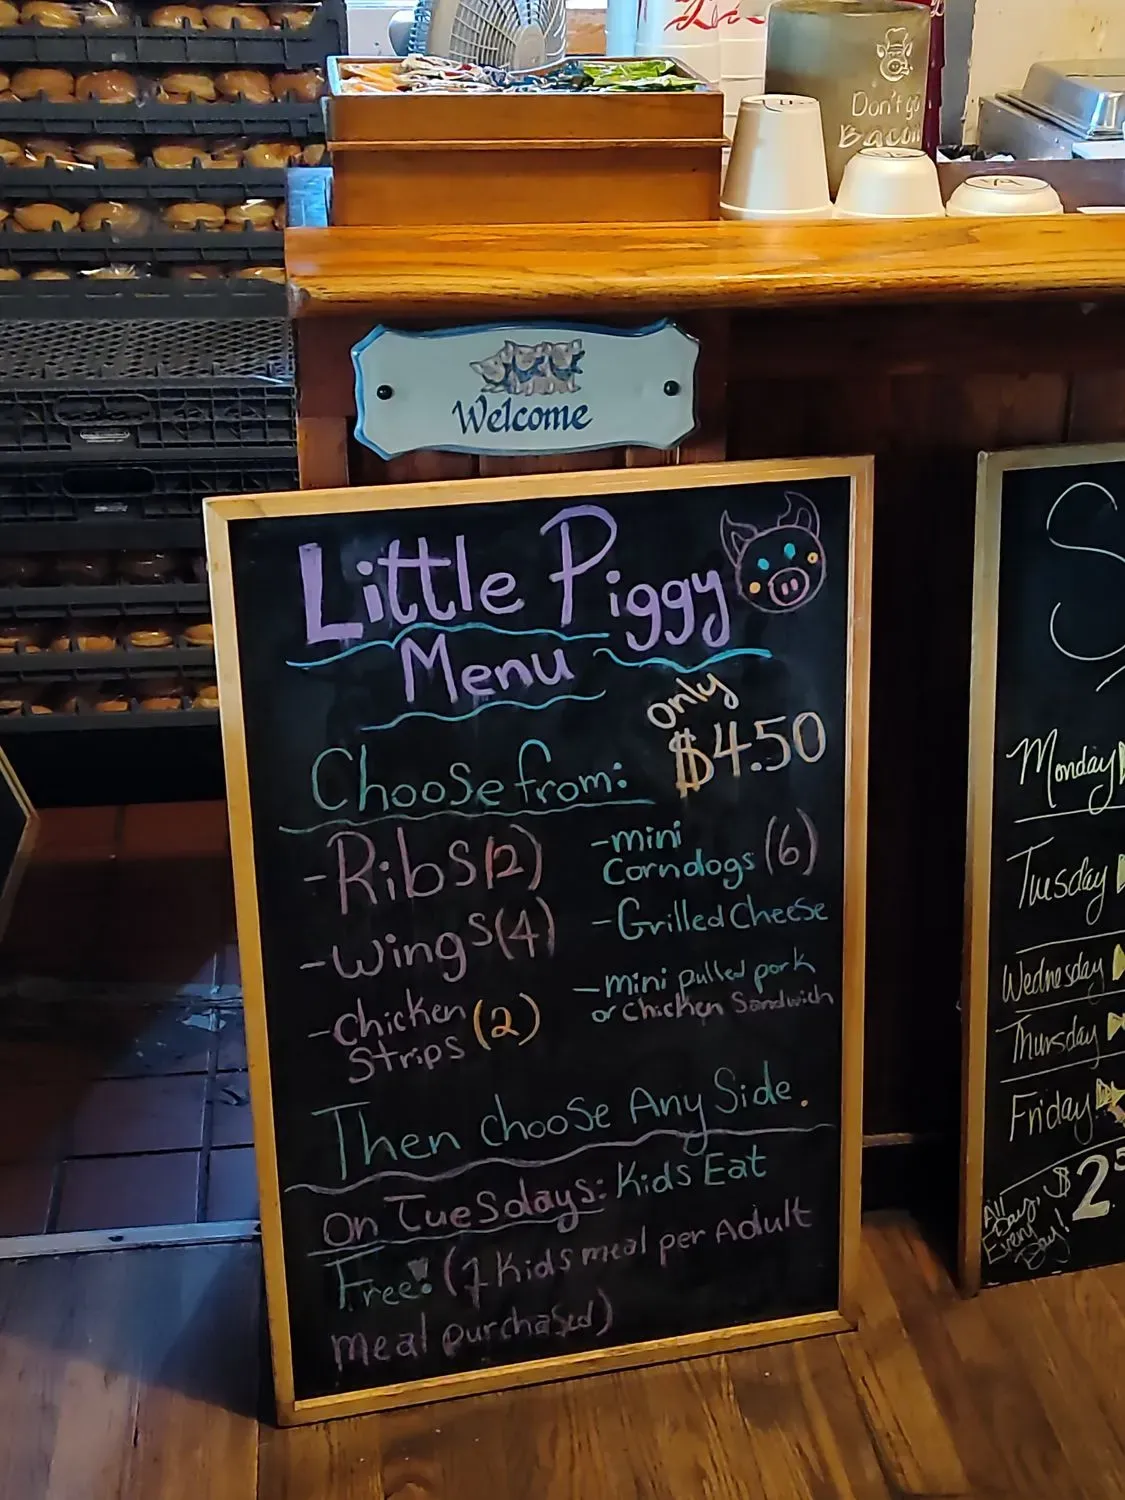 Don't go
Bacon
Welcome
Little Piggy
Menu
only
$4.50
Choose from:
-Ribs (2)
-Wings (4)
-chicken
Strips (2)
-mini
Corndogs (6)
-Grilled Cheese
-mini pulled pork
or chicken Sandwich
Then choose Any Side.
On Tuesdays: Kids Eat
Free! (1 Kids meal per Adult
meal purchased)
Monday
Tuesday
Wednesday
Thursday
Friday
All
Day,
Every
Day!
$2.5